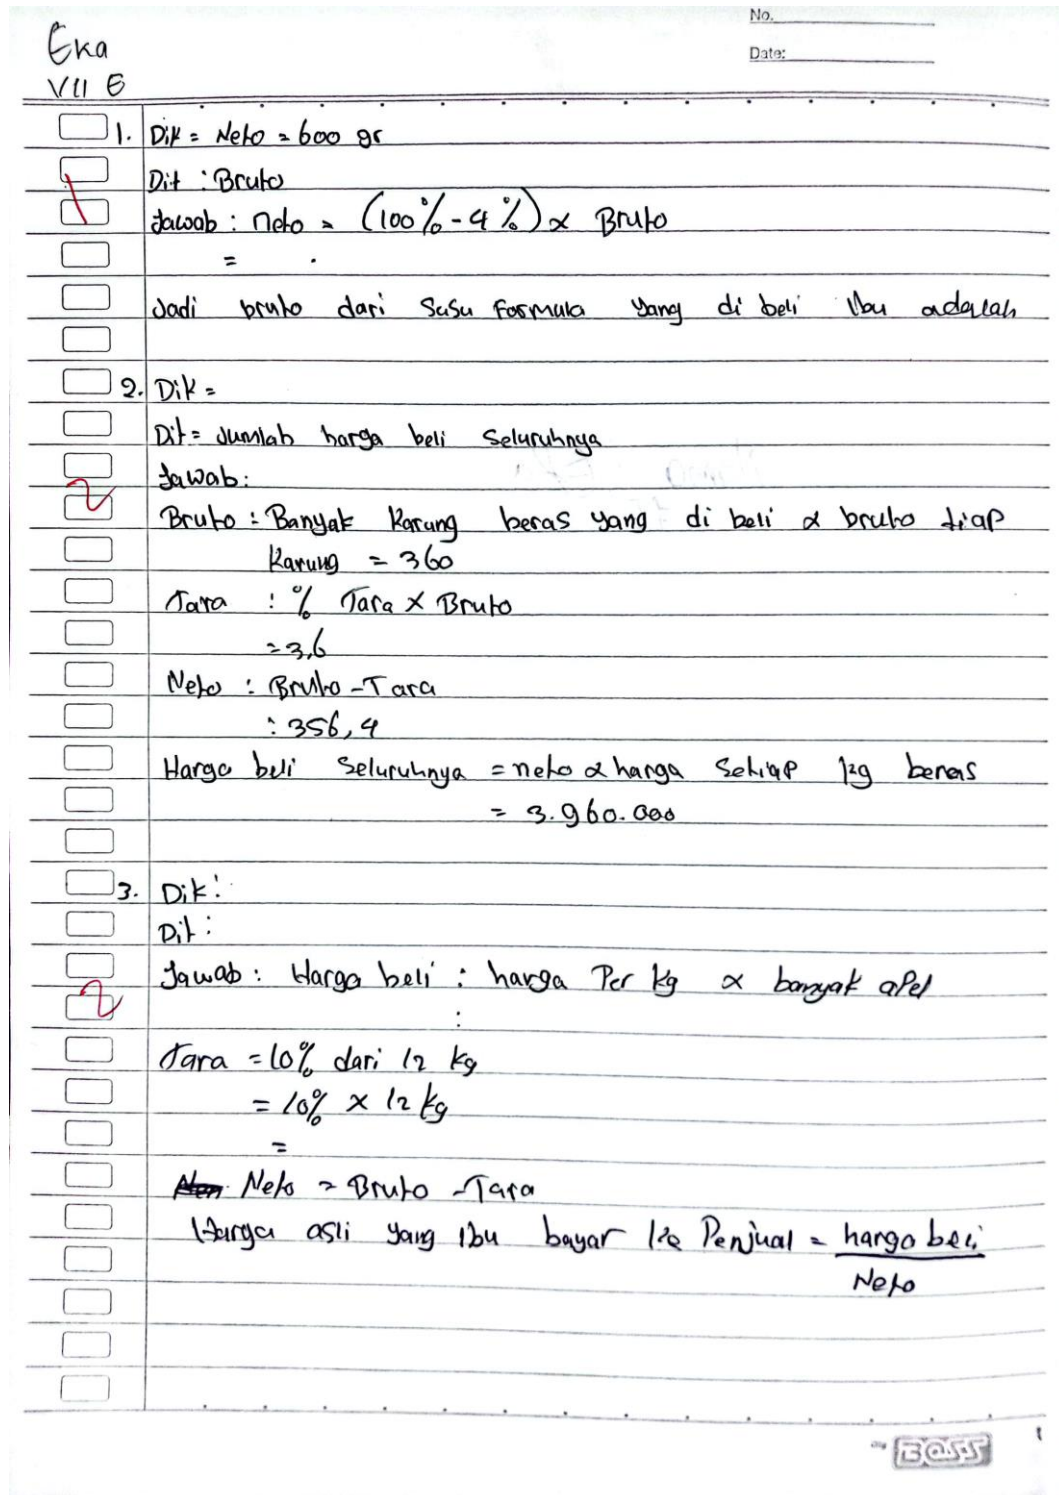 No.
Date:
Eka
VII E
1. Dik = Neto = 600 gr
Dit : Bruto
Jawab : neto = (100% - 4%) x Bruto
= .
Jadi bruto dari Susu Formula yang di beli Ibu adalah
2. Dik =
Dit = Jumlah harga beli Seluruhnya
Jawab :
2
Bruto : Banyak Karung beras yang di beli x bruto tiap
Karung = 360
Tara : % Tara x Bruto
= 3,6
Neto : Bruto - Tara
: 356,4
Harga beli Seluruhnya = neto x harga Setiap kg beras
= 3.960.000
3. Dik :
Dit :
Jawab : Harga beli : harga Per kg x banyak apel
2
:
Tara = 10% dari 12 kg
= 10% x 12 kg
=
Neto = Bruto - Tara
Harga asli yang Ibu bayar ke Penjual = harga beli
Neto
BOSS